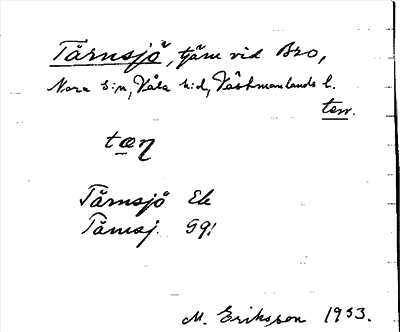 Tårnsjö, tjärn vid Bro,
Nora s:n, Våla h:d, Västmanlands l.
terr.
Tårnsjö Ek
Tårnsj. GG!
M. Eriksson 1933.